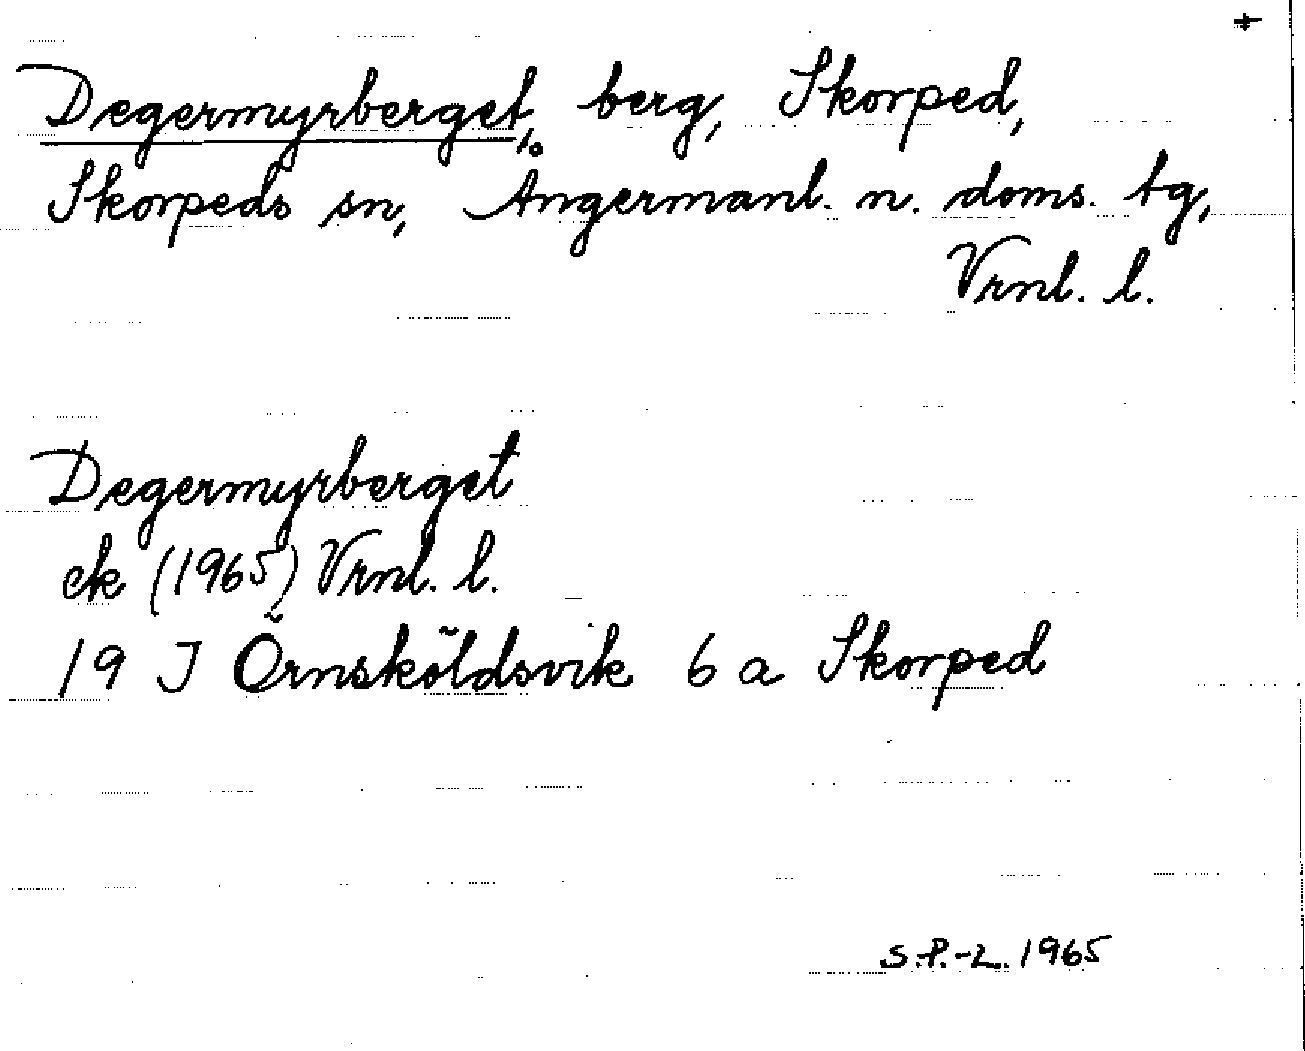 +
Degermyrberget, berg, Skorped,
Skorpeds sn, Ångermanl. n. doms. tg,
Vrnl. l.
Degermyrberget
ek (1965) Vrnl. l.
19 J Örnsköldsvik 6 a Skorped
S.P.-L. 1965